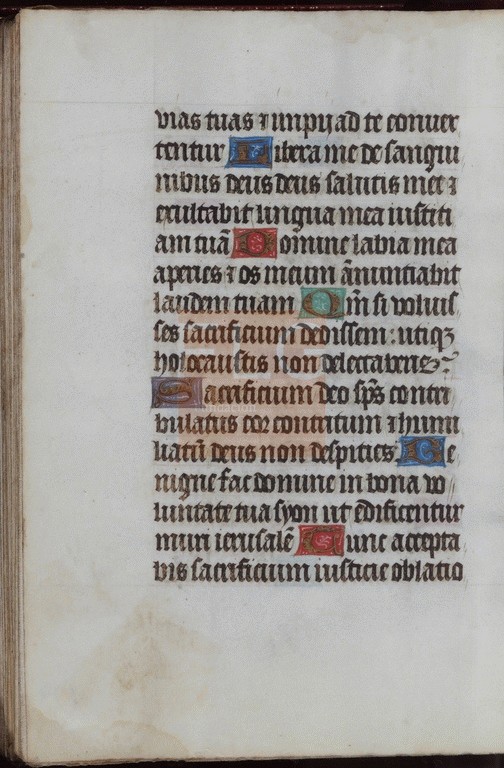 vias tuas ⁊ impij ad te conuer
tentur Libera me de sangui
nibus deus deus salutis mee ⁊
exultabit lingua mea iustiti
am tuā Domine labia mea
aperies ⁊ os meum ānuntiabit
laudem tuam Qm̄ si voluis
ses sacrificium dedissem : utiqꝫ
holocaustis non delectaberis
Sacrificium deo sp̄s contri
bulatus cor contritum ⁊ humi
liatū deus non despicies Be
nigne fac domine in bona vo
luntate tua syon ut edificentur
muri ierusalē Tunc accepta
bis sacrificium iusticie oblatio